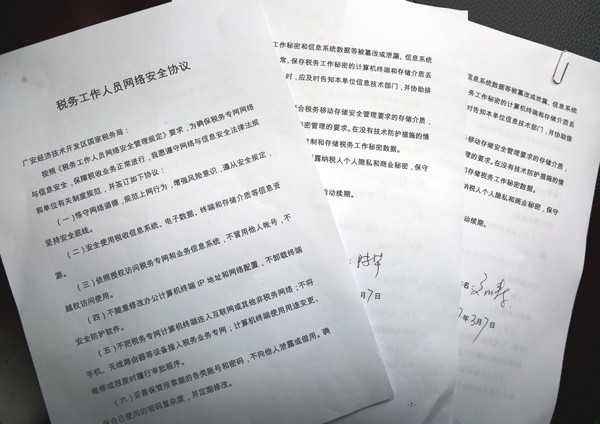 税务工作人员网络安全协议
广安经济技术开发区国家税务局：
按照《税务工作人员网络安全管理规定》要求，为确保税务专网网络
与信息安全，保障税收业务正常进行，我愿遵守网络与信息安全法律法规
和单位有关制度规范，并签订如下协议：
（一）恪守网络道德，规范上网行为，增强风险意识，遵从安全规定，
坚持安全底线。
（二）安全使用税收信息系统、电子数据、终端和存储介质等信息资
源。
（三）依照授权访问税务专网和业务信息系统，不冒用他人账号，不
越权访问使用。
（四）不随意修改办公计算机终端 IP 地址和网络配置，不卸载终端
安全防护软件。
（五）不把税务专网计算机终端接入互联网或其他非税务网络；不将
手机、无线路由器等设备接入税务业务专网；计算机终端使用用途变更、
维修或报废时履行审批程序。
（六）妥善保管所掌握的各类账号和密码，不向他人泄露或借用。确
保自己使用的密码复杂度，并定期修改。
工作秘密和信息系统数据等被篡改或泄漏、信息系统
常，保存税务工作秘密的计算机终端和存储介质丢
时，应及时告知本单位信息技术部门，并协助排
合税务移动存储安全管理要求的存储介质，
密管理的要求。在没有技术防护措施的情
制和存储税务工作秘密数据。
露纳税人个人隐私和商业秘密，保守
动续期。
月7日
信息系统数据等被篡改或泄漏、信息系统
务工作秘密的计算机终端和存储介质丢
时告知本单位信息技术部门，并协助排
移动存储安全管理要求的存储介质，
理的要求。在没有技术防护措施的情
存储税务工作秘密数据。
纳税人个人隐私和商业秘密，保守
续期。
名
年3月7日